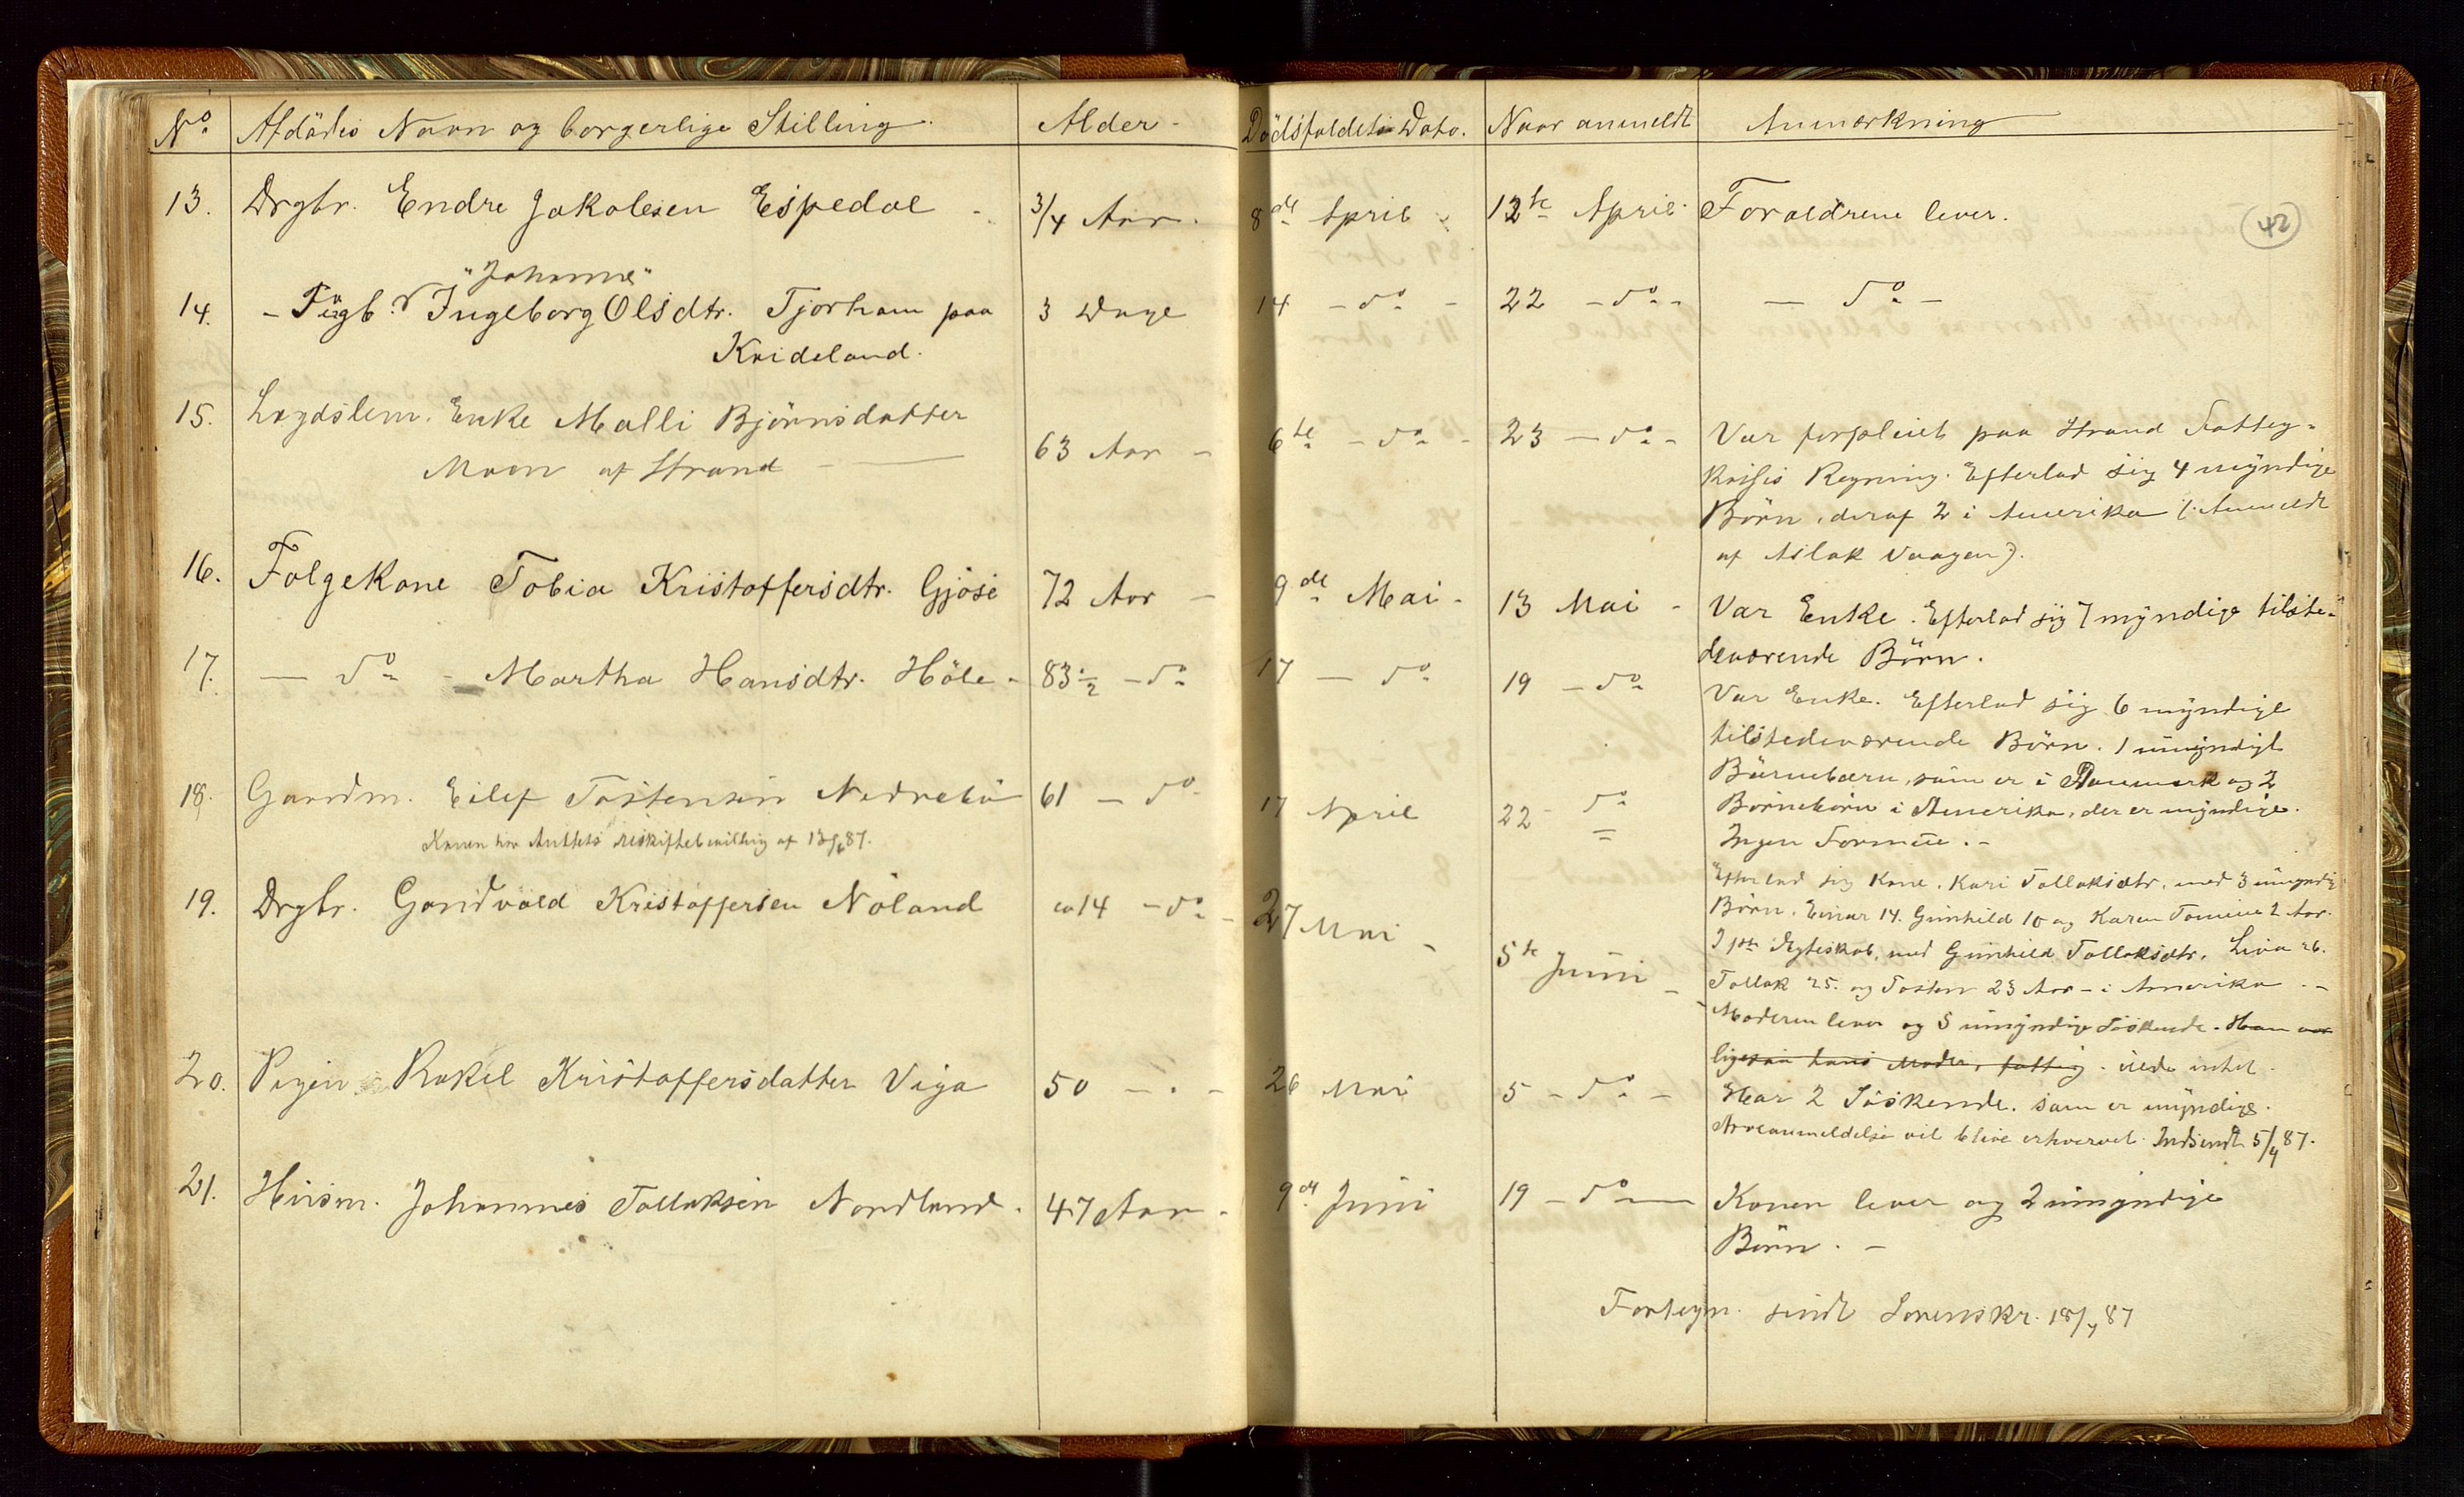 No. Afdödes Navn og borgerlige Stilling. Alder - Dödsfaldets Dato. Naar anmeldt Anmærkning
42
13. Drgbr. Endre Jakobsen Espedal - 3/4 Aar. 8de April 12te April. Forældrene lever.
"Johanne"
14. - Pigb. Ingeborg Olsdtr. Tjorham paa 3 Dage 14 - do - 22 - do - - do -
Krideland.
15. Lægdslem. Enke Malli Björnsdatter
Moen af Strand - 63 Aar - 6te - do - 23 - do - Var forpleiet paa Strand Fatteg-
kasses Regning. Efterlod sig 4 myndige
Börn, deraf 2 i Amerika (Anmeldt
af Aslak Vaagen).
16. Folgekone Tobia Kristoffersdtr. Gjöse 72 Aar - 9de Mai - 13 Mai - Var Enke. Efterlod sig 7 myndige tilste-
deværende Börn.
17. - do - Martha Hansdtr. Höle - 83 1/2 - do 17 - do 19 - do Var Enke. Efterlod sig 6 myndige
tilstedeværende Börn. 1 umyndigt
Barnebarn, som er i Danmark og 2
Börnebörn i Amerika, der er myndige.
Ingen Formue. -
18. Gaardm. Eilef Tostensen Nedrebö 61 - do 17 April 22 - do
Konen har Amtets Uskiftebevilling af 13/6 87.
Efterlod sig Kone, Kari Tollaksdtr. med 3 umyndig
Börn, Einar 14. Gunhild 10 og Karen Tomine 2 Aar.
I 1ste Ægteskab, med Gunhild Tollaksdtr. Liva 26.
Tollak 25. og Tosten 23 Aar - i Amerika. -
19. Drgbr. Gandvold Kristoffersen Nöland ca 14 - do - 27 Mai - 5te Juni - Moderen lever og 5 umyndige Söskende. Han var
ligesaa hans Moder, fattig. eiede intet.
20. Pigen Rakel Kristoffersdatter Viga 50 - " - 26 Mai 5 - do - Har 2 Söskende, som er myndige.
Arveanmeldelse vil blive erhvervet. Indsendt 5/4 87.
21. Husm. Johannes Tollaksen Nordland. 47 Aar - 9de Juni 19 - do - Konen lever og 2 umyndige
Börn. -
Fortegn. sendt Sorenskr. 18/7 87